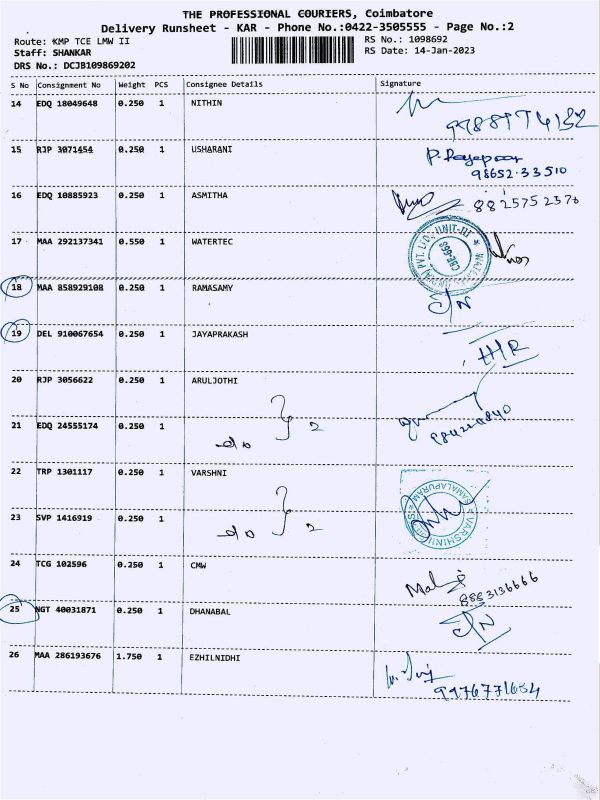 THE PROFESSIONAL COURIERS, Coimbatore
Delivery Runsheet - KAR - Phone No.:0422-3505555 - Page No.:2
Route: KMP TCE LMW II RS No.: 1098692
Staff: SHANKAR RS Date: 14-Jan-2023
DRS No.: DCJB109869202
S No Consignment No Weight PCS Consignee Details Signature
14 EDQ 18049648 0.250 1 NITHIN
15 RJP 3071454 0.250 1 USHARANI
98652.33510
16 EDQ 10885923 0.250 1 ASMITHA 8825752376
17 MAA 292137341 0.550 1 WATERTEC
18 MAA 858929108 0.250 1 RAMASAMY
D/N
19 DEL 910067654 0.250 1 JAYAPRAKASH
H/R
20 RJP 3056622 0.250 1 ARULJOTHI
21 EDQ 24555174 0.250 1 do } 2
22 TRP 1301117 0.250 1 VARSHNI
23 SVP 1416919 0.250 1 do } 2
24 TCG 102596 0.250 1 CMW
8883136666
25 NGT 40031871 0.250 1 DHANABAL D/N
26 MAA 286193676 1.750 1 EZHILNIDHI
9976771684